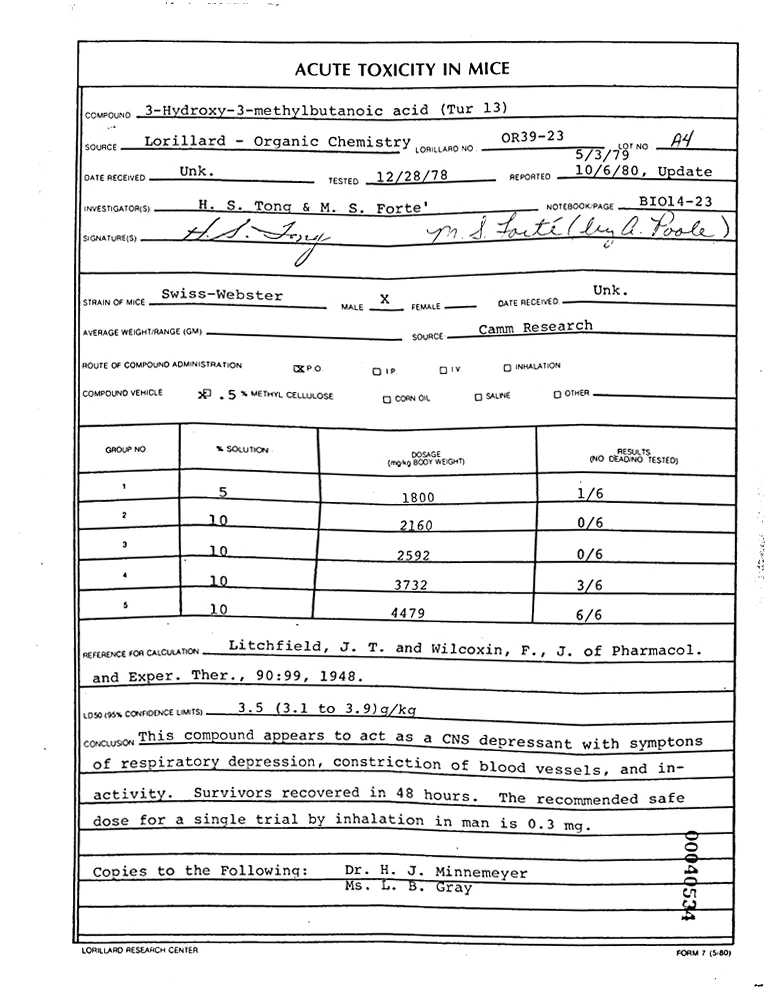 ACUTE TOXICITY IN MICE
COMPOUND 3-Hydroxy-3-methylbutanoic acid (Tur 13)
SOURCE Lorillard - Organic Chemistry LORILLARD NO. OR39-23 LOT NO. A4
5/3/79
DATE RECEIVED Unk. TESTED 12/28/78 REPORTED 10/6/80, Update
INVESTIGATOR(S) H. S. Tong & M. S. Forte' NOTEBOOK/PAGE BIO14-23
SIGNATURE(S) H. S. Tong M. S. Forté (by A. Poole)
STRAIN OF MICE Swiss-Webster MALE X FEMALE DATE RECEIVED Unk.
AVERAGE WEIGHT/RANGE (GM) SOURCE Camm Research
ROUTE OF COMPOUND ADMINISTRATION X P.O. I.P. I.V. INHALATION
COMPOUND VEHICLE X .5 % METHYL CELLULOSE CORN OIL SALINE OTHER
GROUP NO. % SOLUTION DOSAGE (mg/kg BODY WEIGHT) RESULTS (NO DEAD/NO TESTED)
1 5 1800 1/6
2 10 2160 0/6
3 10 2592 0/6
4 10 3732 3/6
5 10 4479 6/6
REFERENCE FOR CALCULATION Litchfield, J. T. and Wilcoxin, F., J. of Pharmacol.
and Exper. Ther., 90:99, 1948.
LD50 (95% CONFIDENCE LIMITS) 3.5 (3.1 to 3.9)g/kg
CONCLUSION This compound appears to act as a CNS depressant with symptons
of respiratory depression, constriction of blood vessels, and in-
activity. Survivors recovered in 48 hours. The recommended safe
dose for a single trial by inhalation in man is 0.3 mg.
Copies to the Following: Dr. H. J. Minnemeyer
Ms. L. B. Gray
00040534
LORILLARD RESEARCH CENTER FORM 7 (5/80)